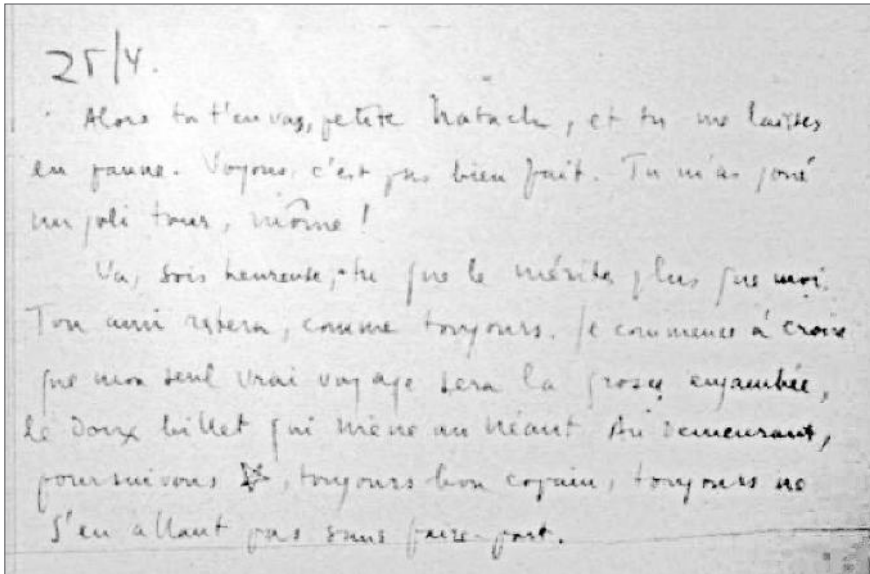 25/4.
Alors tu t'en vas, petite Natach, et tu me laisses
en panne. Voyons, c'est pas bien fait. Tu m'as joué
un joli tour, môme !
Va, sois heureuse, tu le mérites plus que moi.
Ton ami restera, comme toujours. Je commence à croire
que mon seul vrai voyage sera la grosse enjambée,
le doux billet qui mène au néant. Au demeurant,
poursuivons, toujours bon copain, toujours ne
s'en allant pas sans faire-part.